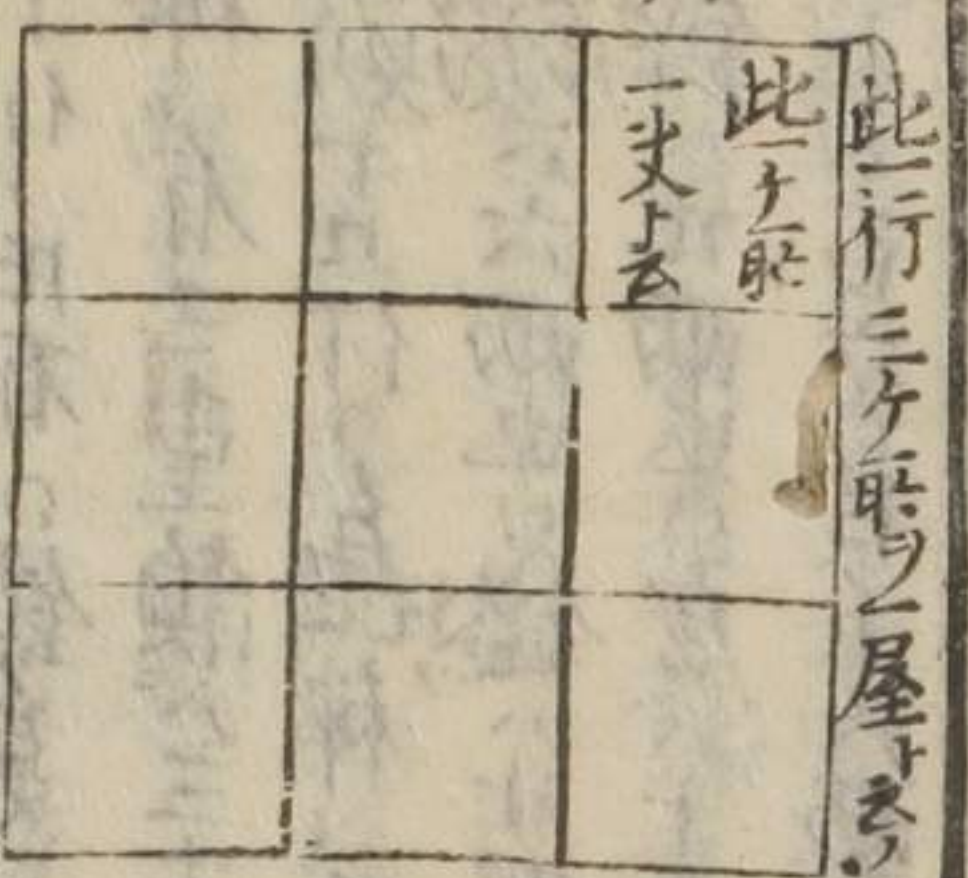 此一行三ケ所ヲ一屋ト云フ
此一ケ所
一丈ト云